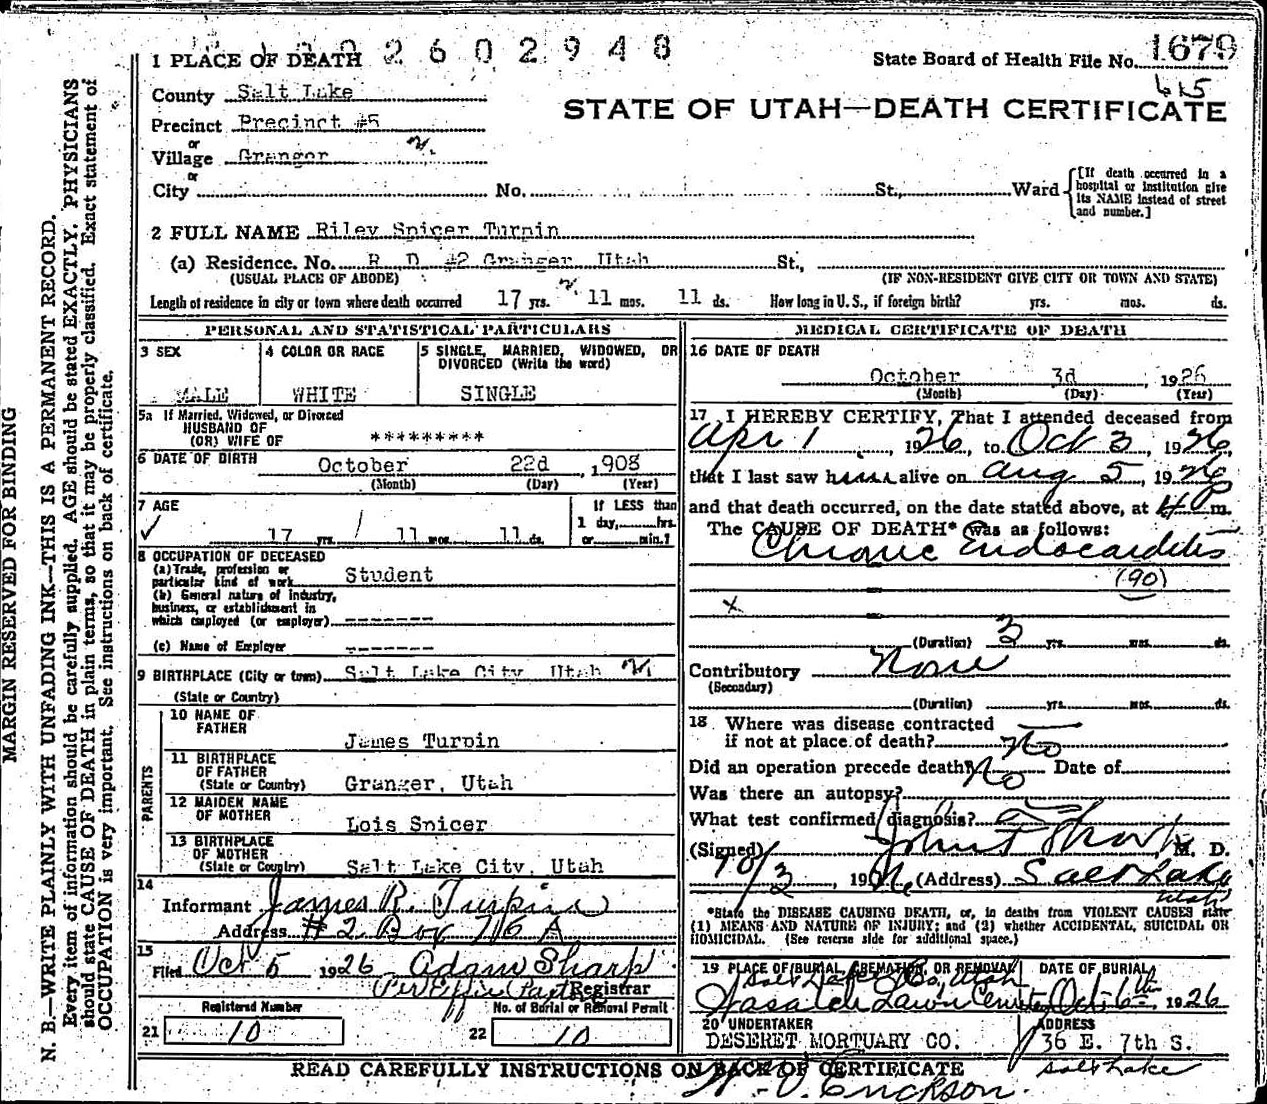 2602948
1 PLACE OF DEATH
State Board of Health File No. 1679
615
County Salt Lake
STATE OF UTAH—DEATH CERTIFICATE
Precinct Precinct #5
or
Village Granger
or
City No. St., Ward
[If death occurred in a hospital or institution give its NAME instead of street and number.]
2 FULL NAME Riley Spicer Turpin
(a) Residence. No. R. D. #2 Granger, Utah St.,
(USUAL PLACE OF ABODE) (IF NON-RESIDENT GIVE CITY OR TOWN AND STATE)
Length of residence in city or town where death occurred 17 yrs. 11 mos. 11 ds. How long in U. S., if foreign birth? yrs. mos. ds.
PERSONAL AND STATISTICAL PARTICULARS
3 SEX
MALE
4 COLOR OR RACE
WHITE
5 SINGLE, MARRIED, WIDOWED, OR
DIVORCED (Write the word)
SINGLE
5a If Married, Widowed, or Divorced
HUSBAND OF
(OR) WIFE OF *********
6 DATE OF BIRTH October 22d, 1908
(Month) (Day) (Year)
7 AGE
17 yrs. 11 mos. 11 ds.
If LESS than
1 day, hrs.
or min.?
8 OCCUPATION OF DECEASED
(a) Trade, profession or
particular kind of work Student
(b) General nature of industry,
business, or establishment in
which employed (or employer) -------
(c) Name of Employer -------
9 BIRTHPLACE (City or town) Salt Lake City, Utah
(State or Country)
PARENTS
10 NAME OF
FATHER
James Turpin
11 BIRTHPLACE
OF FATHER
(State or Country) Granger, Utah
12 MAIDEN NAME
OF MOTHER
Lois Spicer
13 BIRTHPLACE
OF MOTHER
(State or Country) Salt Lake City, Utah
14
Informant James R. Turpin
Address #2 Box 716 A
15
Filed Oct 5 1926 Adam Sharp
Per Effie Registrar
Registered Number
21 10
No. of Burial or Removal Permit
22 10
MEDICAL CERTIFICATE OF DEATH
16 DATE OF DEATH
October 3d, 1926
(Month) (Day) (Year)
17 I HEREBY CERTIFY, That I attended deceased from
Apr 1, 1926, to Oct 3, 1926,
that I last saw him alive on Aug 5, 1926
and that death occurred, on the date stated above, at 4 P m.
The CAUSE OF DEATH* was as follows:
Chronic Endocarditis
(90)
x
(Duration) 3 yrs. mos. ds.
Contributory None
(Secondary)
(Duration) yrs. mos. ds.
18 Where was disease contracted
if not at place of death?
Did an operation precede death? No Date of
Was there an autopsy? No
What test confirmed diagnosis?
(Signed) John T Sharp, M. D.
10/3, 1926 (Address) Salt Lake
Utah
*State the DISEASE CAUSING DEATH, or, in deaths from VIOLENT CAUSES state
(1) MEANS AND NATURE OF INJURY; and (2) whether ACCIDENTAL, SUICIDAL OR
HOMICIDAL. (See reverse side for additional space.)
19 PLACE OF BURIAL, CREMATION, OR REMOVAL DATE OF BURIAL
Salt Lake Co, Utah
Wasatch Lawn Cemetery Oct 6th 1926
20 UNDERTAKER ADDRESS
DESERET MORTUARY CO. 36 E. 7th S.
Salt Lake
READ CAREFULLY INSTRUCTIONS ON BACK OF CERTIFICATE
W. V. Erickson.
MARGIN RESERVED FOR BINDING
N. B.—WRITE PLAINLY WITH UNFADING INK—THIS IS A PERMANENT RECORD.
Every item of information should be carefully supplied. AGE should be stated EXACTLY. PHYSICIANS
should state CAUSE OF DEATH in plain terms, so that it may be properly classified. Exact statement of
OCCUPATION is very important. See instructions on back of certificate.